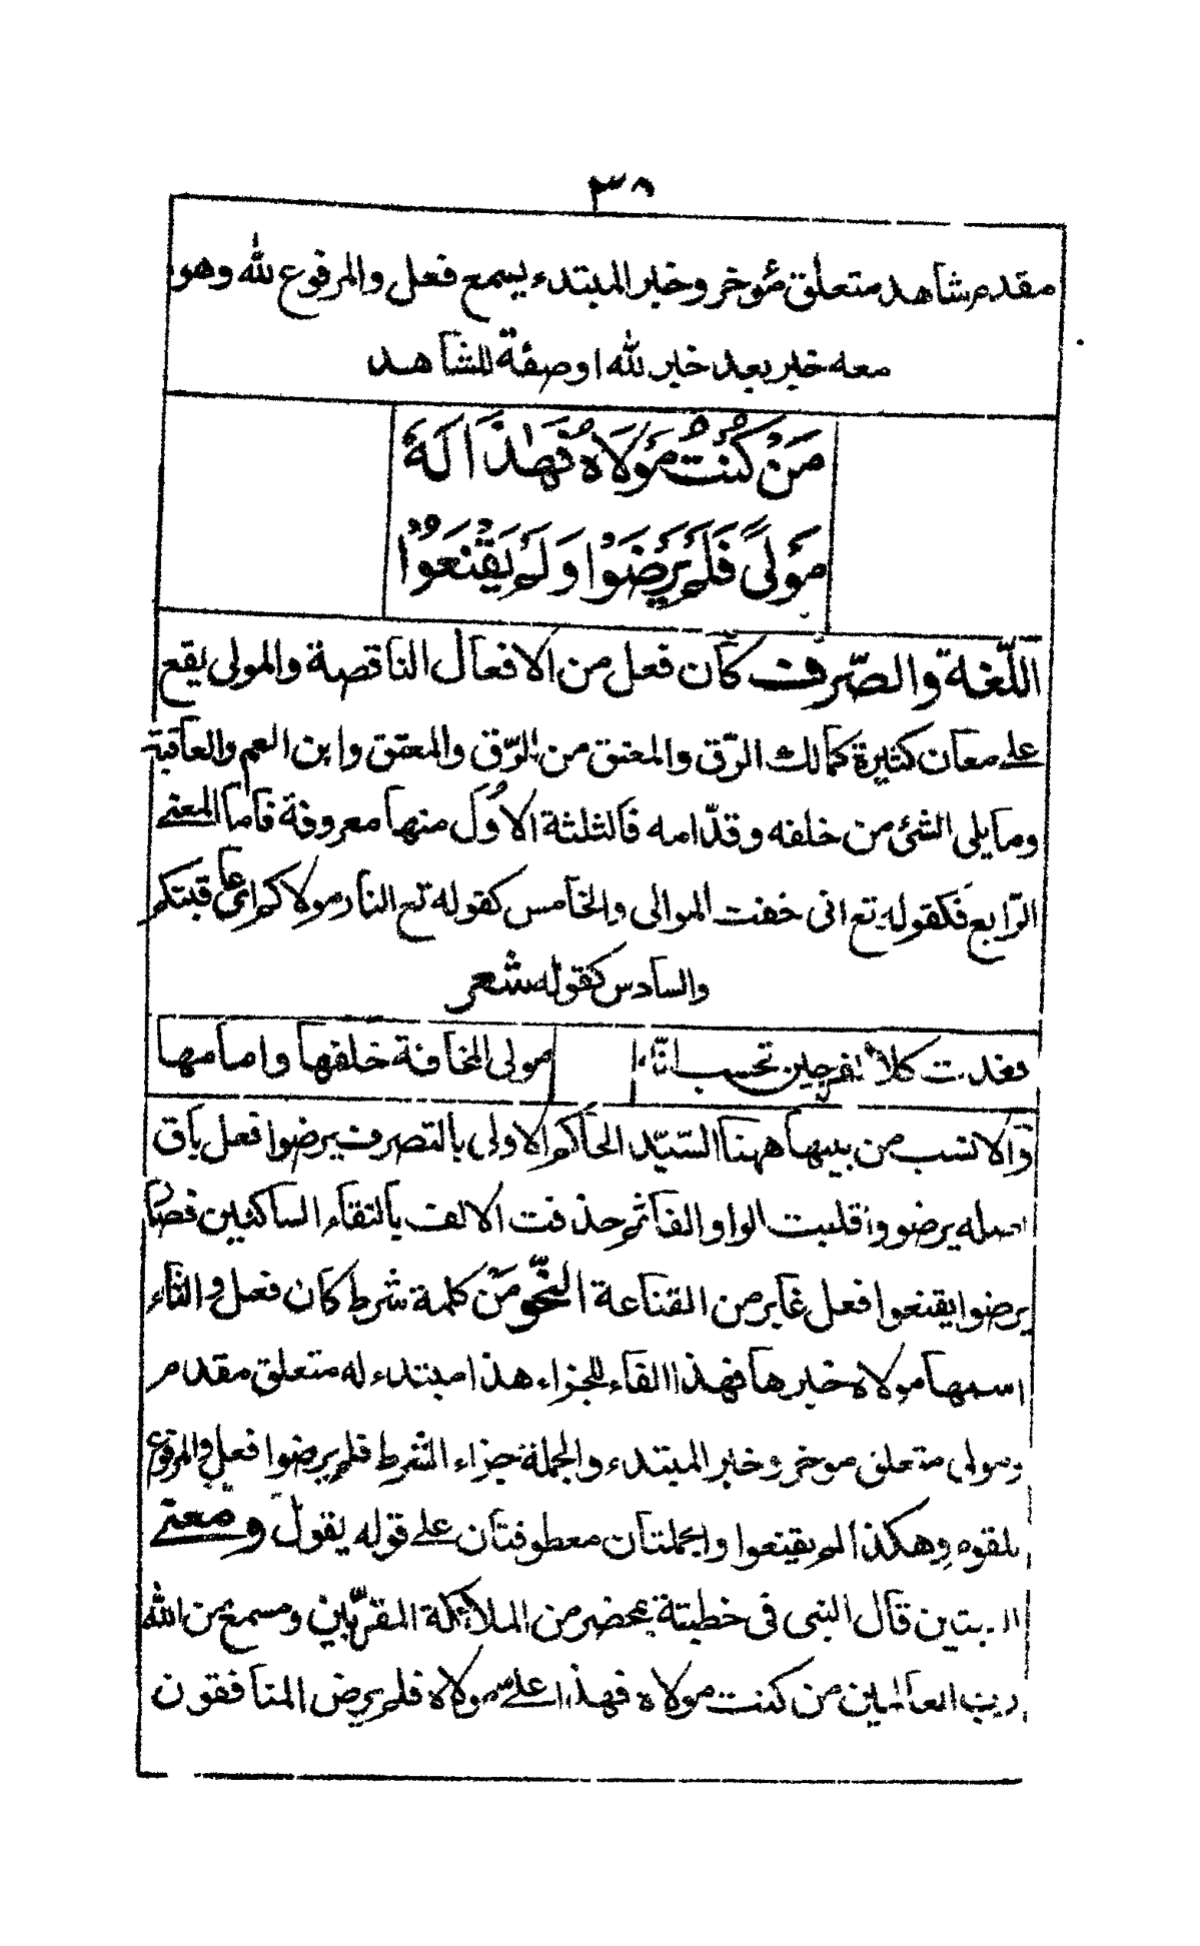 ٣٨
مقدم شاهد متعلق مؤخر وخبر المبتدء يسمع فعل والمرفوع لله وهو
معه خبر بعد خبر لله اوصفة للشاهد
مَنْ كُنْتُ مَوْلَاهُ فَهٰذَا لَهُ
مَوْلًى فَلَمْ يَرْضَوْا وَلَمْ يَقْنَعُوْا
اللّغة والصّرف كان فعل من الافعال الناقصة والمولى يقع
على معان كثيرة كمالك الرّق والمعتق من الرّق والمعتق وابن العم والعاقبة
وما يلى الشئ من خلفه وقدّامه فالثلثة الأول منها معروفة فاما المعنى
الرّابع فكقوله تع انى خفت الموالى والخامس كقوله تع النار مولاكم اى عاقبتكم
والسادس كقوله شعر
فغدت كلا الفرجين تحسب انّه
مولى المخافة خلفها وامامها
والانسب من بينها ههنا السّيّد الحاكم الاولى بالتصرف يرضوا فعل باق
اصله يرضووا قلبت الواو الفا ثم حذفت الالف بالتقاء الساكنين فصار
يرضوا يقنعوا فعل غابر من القناعة النّحو مَنْ كلمة شرط كان فعل والتاء
اسمها مولاه خبرها فهذا الفاء للجزاء هذا مبتدء له متعلق مقدم
ومولى متعلق موخر وخبر المبتدء والجملة جزاء الشرط فلم يرضوا فعل والمرفوع
للقوم وهكذا لم يقنعوا والجملتان معطوفتان على قوله يقول ومعنى
البيتين قال النبى فى خطبتة بمحضر من الملائكة المقرّبين ومسمع من الله
رب العالمين من كنت مولاه فهذا على مولاه فلم يرض المنافقون